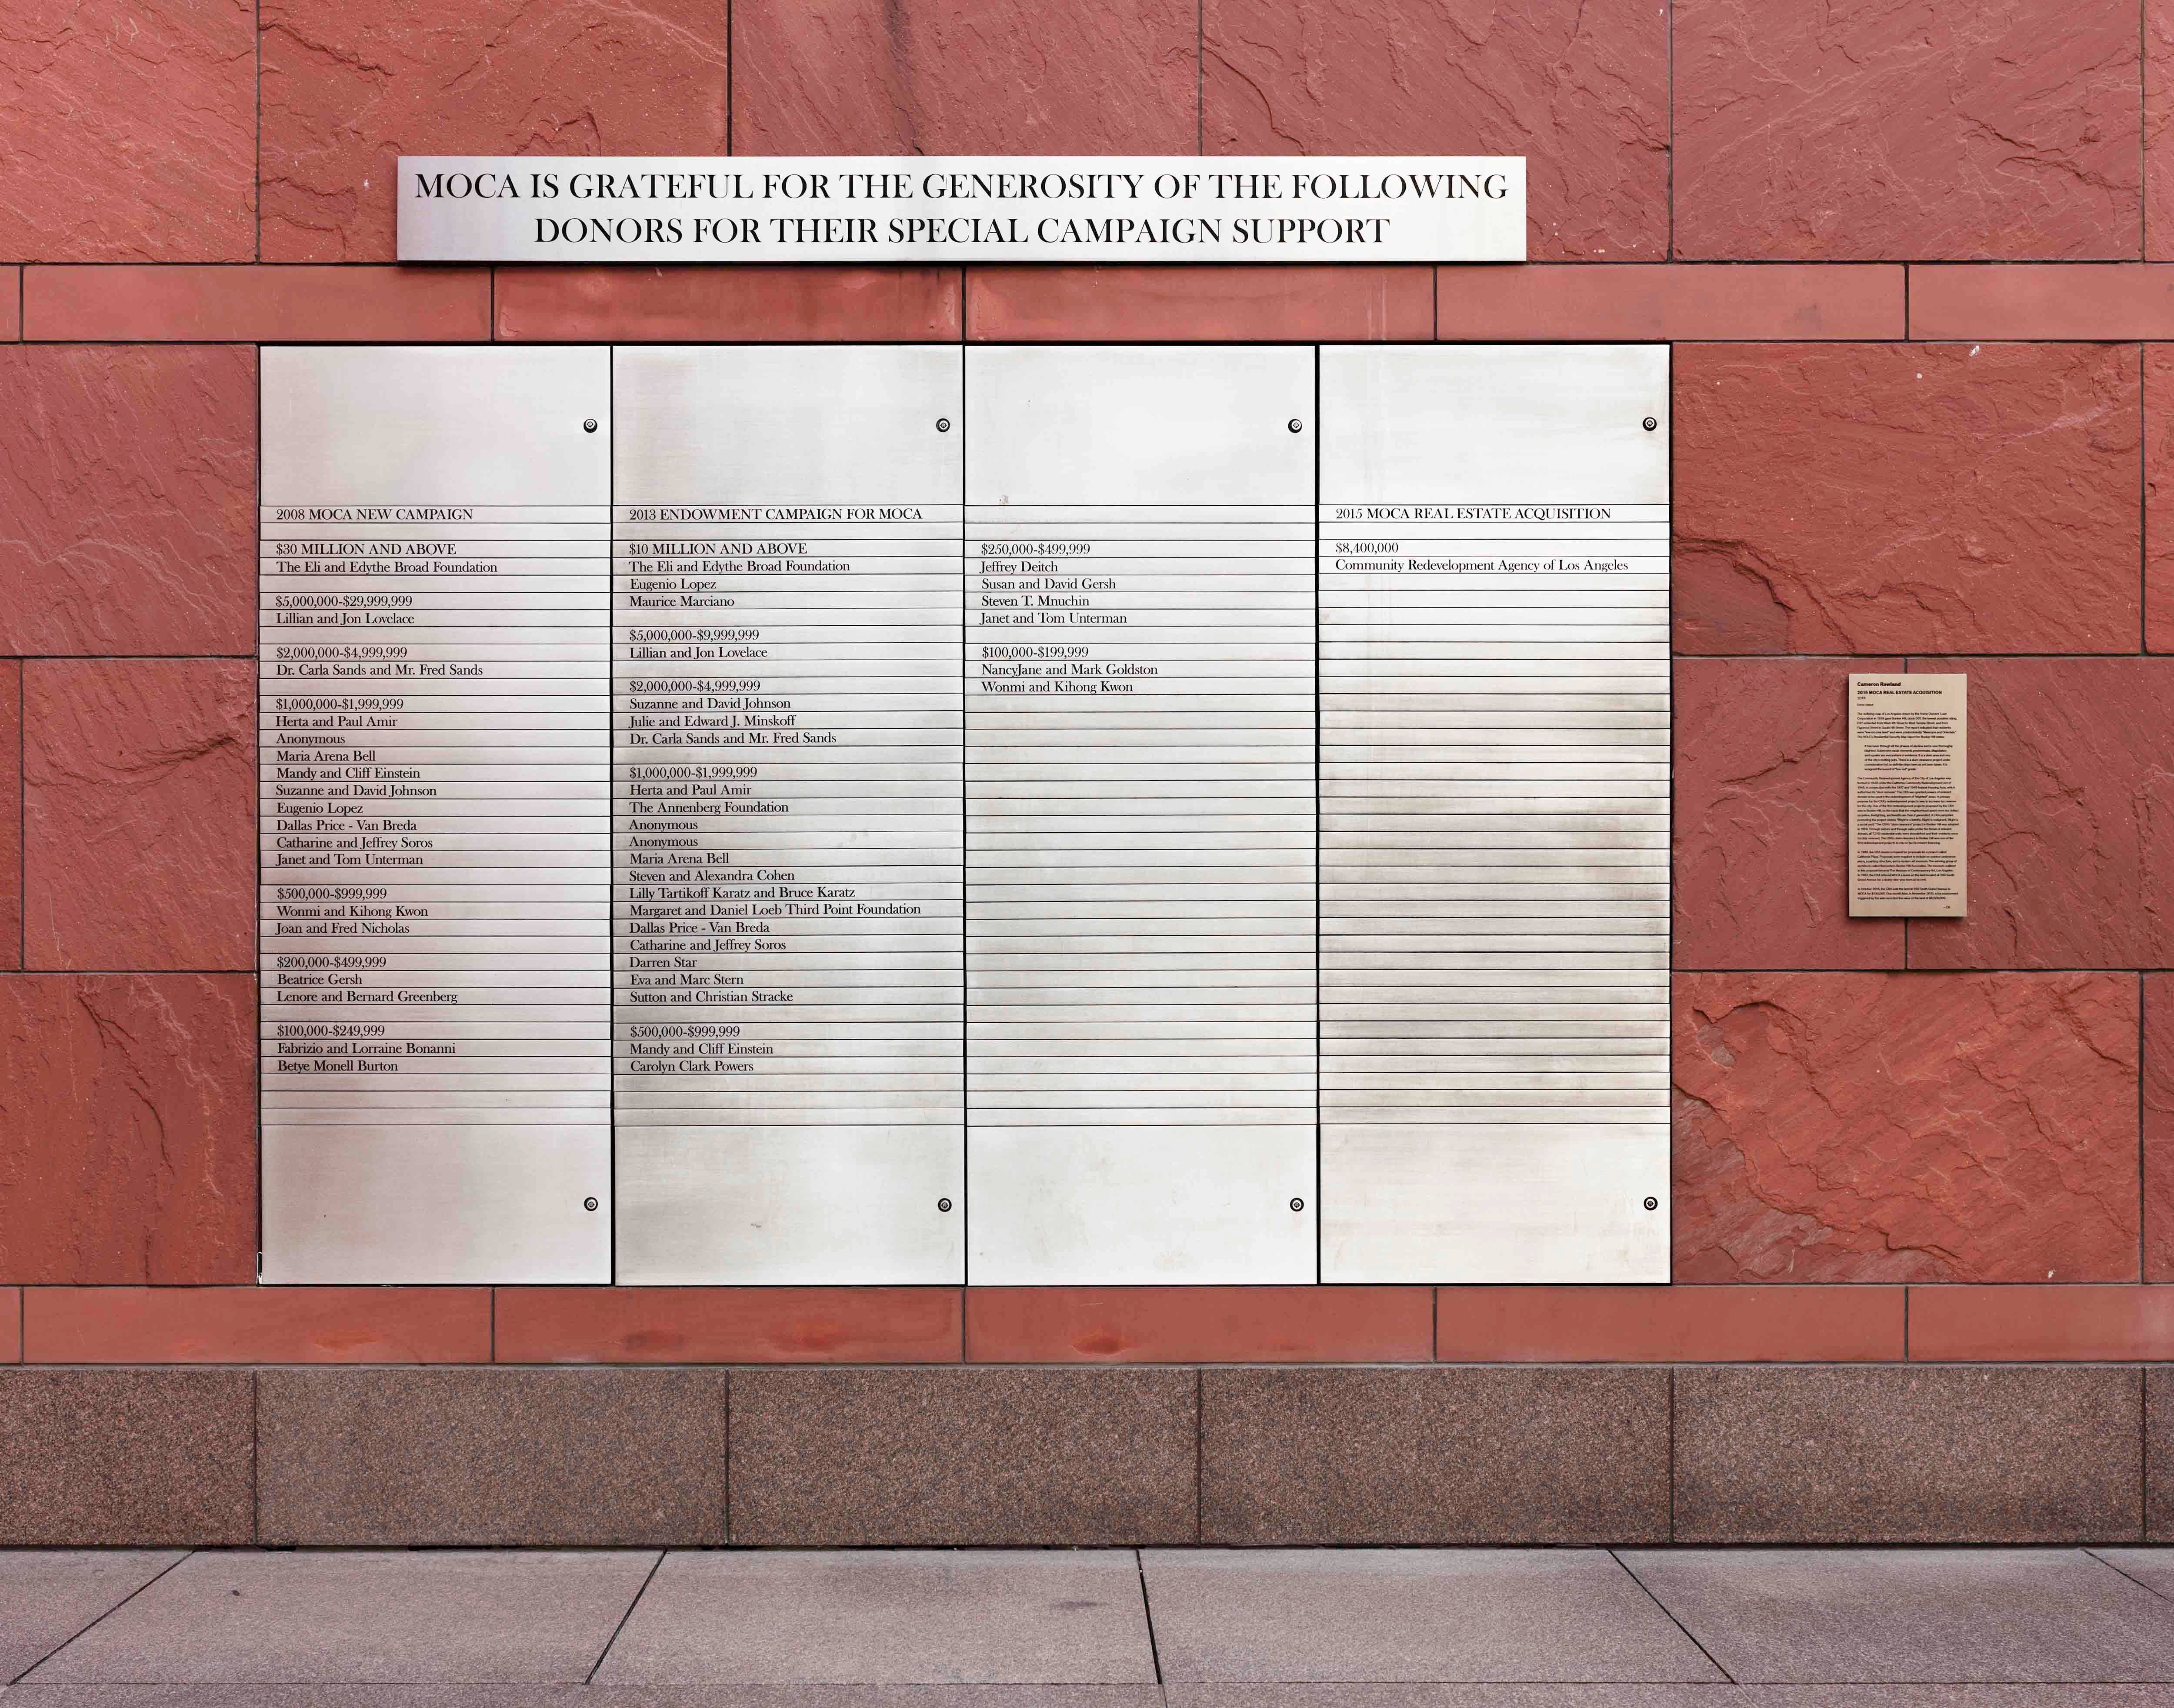 MOCA IS GRATEFUL FOR THE GENEROSITY OF THE FOLLOWING
DONORS FOR THEIR SPECIAL CAMPAIGN SUPPORT
2008 MOCA NEW CAMPAIGN
$30 MILLION AND ABOVE
The Eli and Edythe Broad Foundation
$5,000,000-$29,999,999
Lillian and Jon Lovelace
$2,000,000-$4,999,999
Dr. Carla Sands and Mr. Fred Sands
$1,000,000-$1,999,999
Herta and Paul Amir
Anonymous
Maria Arena Bell
Mandy and Cliff Einstein
Suzanne and David Johnson
Eugenio Lopez
Dallas Price - Van Breda
Catharine and Jeffrey Soros
Janet and Tom Unterman
$500,000-$999,999
Wonmi and Kihong Kwon
Joan and Fred Nicholas
$200,000-$499,999
Beatrice Gersh
Lenore and Bernard Greenberg
$100,000-$249,999
Fabrizio and Lorraine Bonanni
Betye Monell Burton
2013 ENDOWMENT CAMPAIGN FOR MOCA
$10 MILLION AND ABOVE
The Eli and Edythe Broad Foundation
Eugenio Lopez
Maurice Marciano
$5,000,000-$9,999,999
Lillian and Jon Lovelace
$2,000,000-$4,999,999
Suzanne and David Johnson
Julie and Edward J. Minskoff
Dr. Carla Sands and Mr. Fred Sands
$1,000,000-$1,999,999
Herta and Paul Amir
The Annenberg Foundation
Anonymous
Anonymous
Maria Arena Bell
Steven and Alexandra Cohen
Lilly Tartikoff Karatz and Bruce Karatz
Margaret and Daniel Loeb Third Point Foundation
Dallas Price - Van Breda
Catharine and Jeffrey Soros
Darren Star
Eva and Marc Stern
Sutton and Christian Stracke
$500,000-$999,999
Mandy and Cliff Einstein
Carolyn Clark Powers
$250,000-$499,999
Jeffrey Deitch
Susan and David Gersh
Steven T. Mnuchin
Janet and Tom Unterman
$100,000-$199,999
NancyJane and Mark Goldston
Wonmi and Kihong Kwon
2015 MOCA REAL ESTATE ACQUISITION
$8,400,000
Community Redevelopment Agency of Los Angeles
Cameron Rowland
2015 MOCA REAL ESTATE ACQUISITION